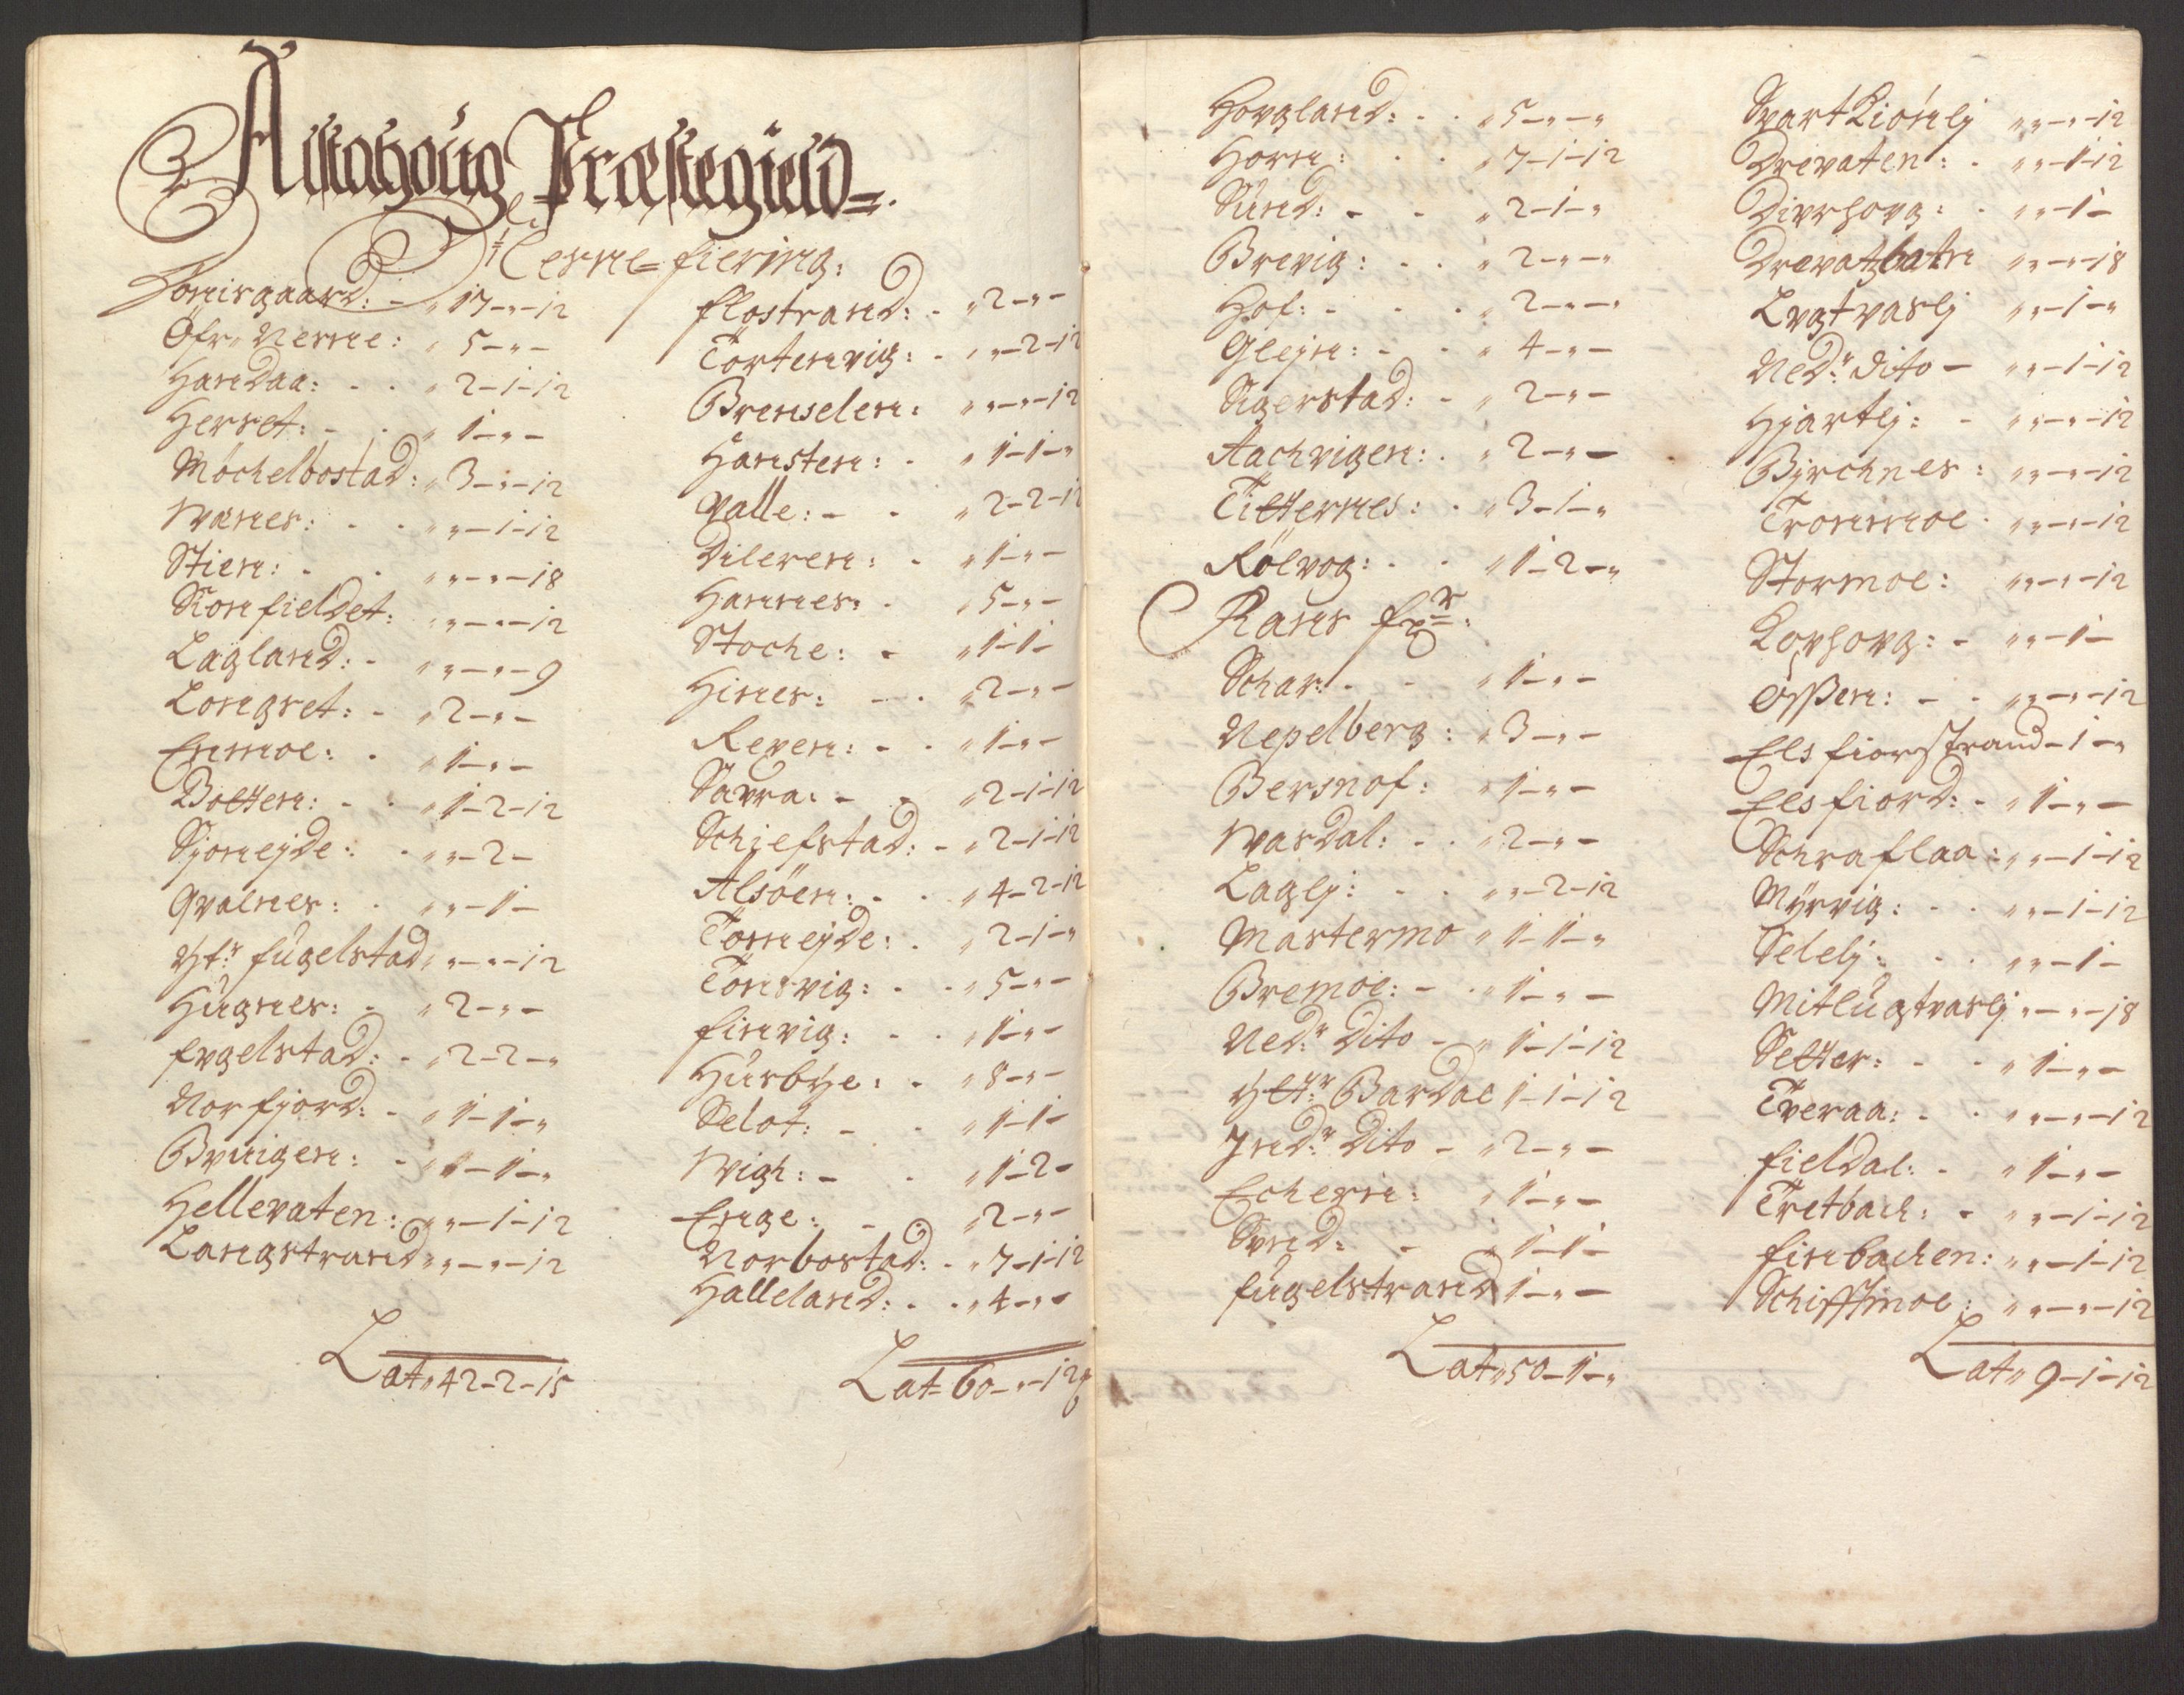 Alstahoug Præstegield
Nerne fiering:
Tønisgaard: - „ 17-„-12
Öfr. Nerne: „ 5-„-
Handaa: - - „ 2-1-12
Herset: - - „ 1-„-
Mochelbostad: „ 3-„-12
Wanes: - - „ „-1-12
Stien: - - „ „-„-18
Konfieldet: „ „-„-12
Lagland: - „ „-„-9
Longset: - „ 2-„-
Enmoe: - „ 1-„-
Botten: - - „ 1-2-12
Sjoneyde: - „ „-2-
Qvalnes: - „ „-1-
Yt.r fugelstad „ „-„-12
Hugnes: - „ 2-„-
fvgelstad: - „ 2-2-„
Norfjord: - „ 1-1-„
Bvningen: - „ 1-1-„
Hellevaten: „ „-1-12
Langstrand „ „-„-12
Lat „ 42-2-15
flostrand: - „ 2-„-
Tortenvig: - „ „-2-12
Brenselen: „ „-„-12
Hansten: - „ 1-1-„
Valle: - - „ 2-2-12
Dileren: - „ 1-„-
Hannes: - „ 5-„-
Stoche: - „ 1-1-
Hines: - - „ 2-„-
Reven: - - „ 1-„-
Savra: - - „ 2-1-12
Schiefstad: - „ 2-1-12
Alsöen: - - „ 4-2-12
Toneyde: - „ 2-1-„
Tonsvig: - - „ 5-„-
finvig: - - „ 1-„-
Husbye: - „ 8-„-
Selot: - - „ 1-1-
Wigh: - - „ 1-2-
Enge: - - „ 2-„-
Norbostad: - „ 7-1-12
Halleland: - - „ 4-„-
Lat= 60-„-12
Hovgland: - - „ 5-„-„
Horn: - - „ 7-1-12
Sund: - - „ 2-1-„
Brevig: - - „ 2-„-„
Hof: - - - „ 2-„-„
Glejn: - - „ 4-„-
Sigerstad: - „ 2-„-
Aachvigen: - „ 2-„-
Titternes: - „ 3-1-„
Rölvog: - - „ 1-2-„
Rans f:
Schar: - - „ 1-„-
Nepelberg: „ 3-„-
Bersnof: „ 1-„-
Wasdal: - - „ 2-„-
Laglj: - - „ „-2-12
Mastermo „ 1-1-„
Bremoe: - - „ 1-„-
Ned.r Dito - „ 1-1-12
Ytt.r Bardal 1-1-12
Ind.r Dito - „ 2-„-
Echern: „ 1-„-
Svnd: - „ 1-1-
fugelstrand 1-„-
Lat „ 50-1-„
Svart Kiönlj „ „-„-12
Drevaten: - „ „-1-12
Divrhovg: - „ „-1-
Drevatzbatn „ „-„-18
Lvgtvaslj „ „-1-„
Ned.r dito - „ „-1-12
Hjartlj: - „ „-„-12
Bjrchnes: „ „-„-12
Tronmoe - „ „-„-12
Stormoe: „ „-„-12
Kovhovg: - „ „-1-
Osßen: - - „ „-„-12
Elsfiorstrand-1-„
Elsfiord: - „ 1-„-
Schraflaa: „ „-1-12
Myrvig: - - „ „-1-12
Selelj: - - „ „-1-
Mitlugtvaslj „-„-18
Setter: - - „ 1-„-
Tveraa: - - „ „-„-12
fieldal: - „ 1-„-
Tretbach: - „ „-1-12
finbachen: „ „-1-12
Schifftmoe: „ „-„-12
Lat „ 9-1-12